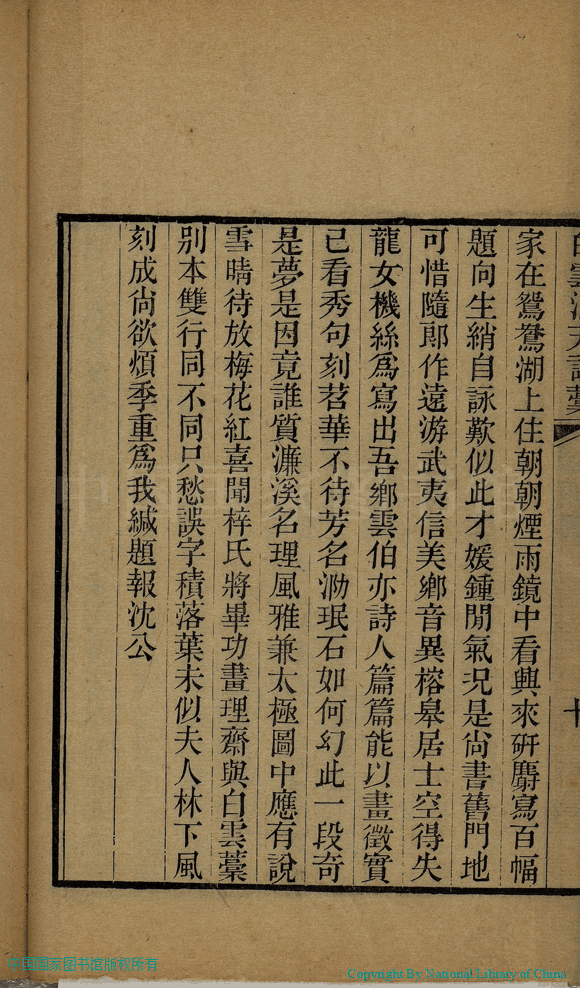 家在鴛鴦湖上住朝朝煙雨鏡中看興來硏麝寫百幅
題向生綃自詠歎似此才媛鍾閒氣況是尙書舊門地
可惜隨郞作遠游武夷信美鄉音異榕皋居士空得失
龍女機絲爲寫出吾鄉雲伯亦詩人篇篇能以畫徵實
己看秀句刻苕華不待芳名泐珉石如何幻此一段奇
是夢是因竟誰質濂溪名理風雅兼太極圖中應有說
雪晴待放梅花紅喜聞梓氏將畢功畫理齋與白雲藁
別本雙行同不同只愁誤字積落葉未似夫人林下風
刻成尙欲煩季重爲我緘題報沈公
中国国家图书馆版权所有
Copyright By National Library of China